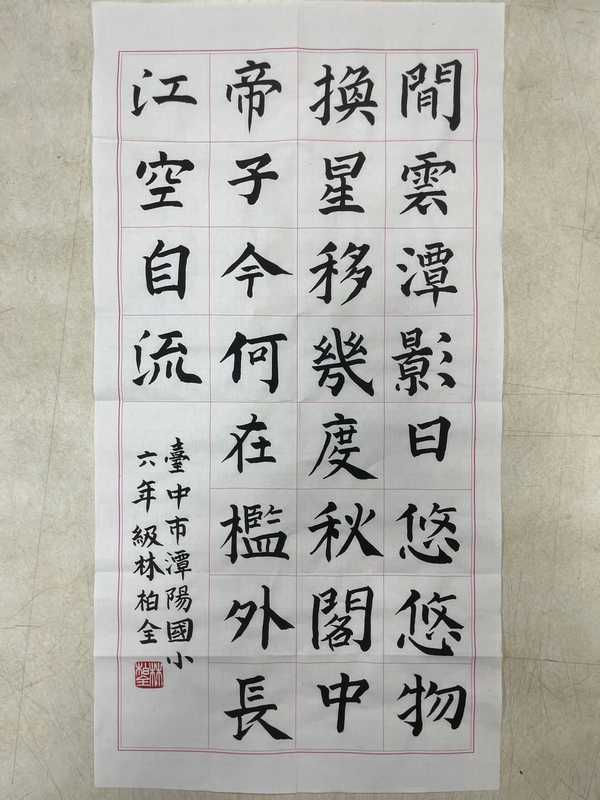 閒雲潭影日悠悠物
換星移幾度秋閣中
帝子今何在檻外長
江空自流
臺中市潭陽國小
六年級林柏全